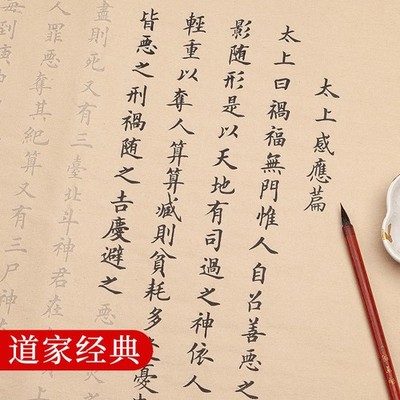 太上感應篇
太上曰禍福無門惟人自召善惡之
影随形是以天地有司過之神依人
輕重以奪人算算減則貧耗多憂
皆惡之刑禍随之吉慶避之
盡則死又有三臺北斗神君在
人罪惡奪其紀算又有三尸神
到庚
道家经典